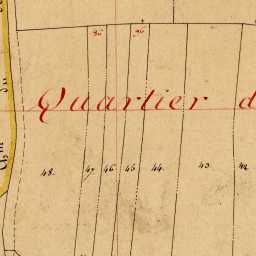 96 96
Quartier d
48. 47 46 45 44. 43. 42